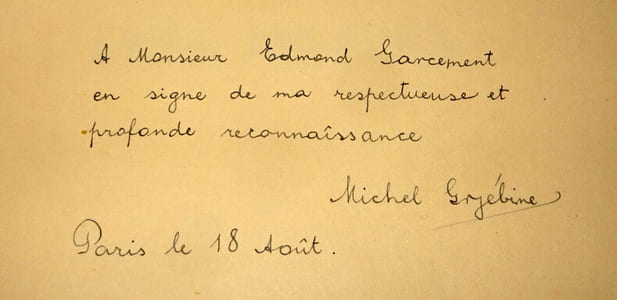 A Monsieur Edmond Garcement
en signe de ma respectueuse et
profonde reconnaîssance
Michel Gryébine
Paris le 18 Août.